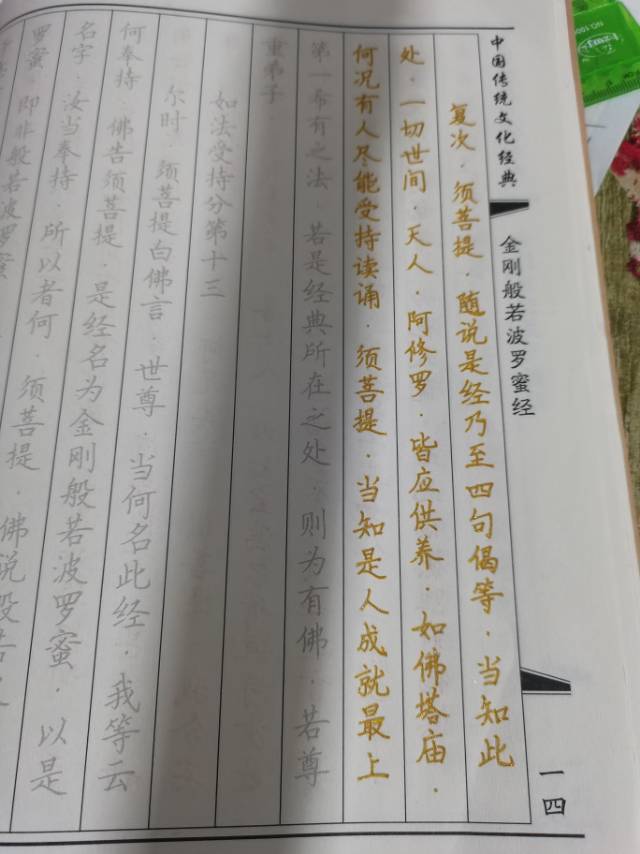 中国传统文化经典
金刚般若波罗蜜经
一四
复次·须菩提·随说是经乃至四句偈等·当知此
处·一切世间·天人·阿修罗·皆应供养·如佛塔庙·
何况有人尽能受持读诵·须菩提·当知是人成就最上
第一希有之法·若是经典所在之处·则为有佛·若尊
重弟子·
如法受持分第十三
尔时·须菩提白佛言·世尊·当何名此经·我等云
何奉持·佛告须菩提·是经名为金刚般若波罗蜜·以是
名字·汝当奉持·所以者何·须菩提·佛说般若
罗蜜·即非般若波罗蜜